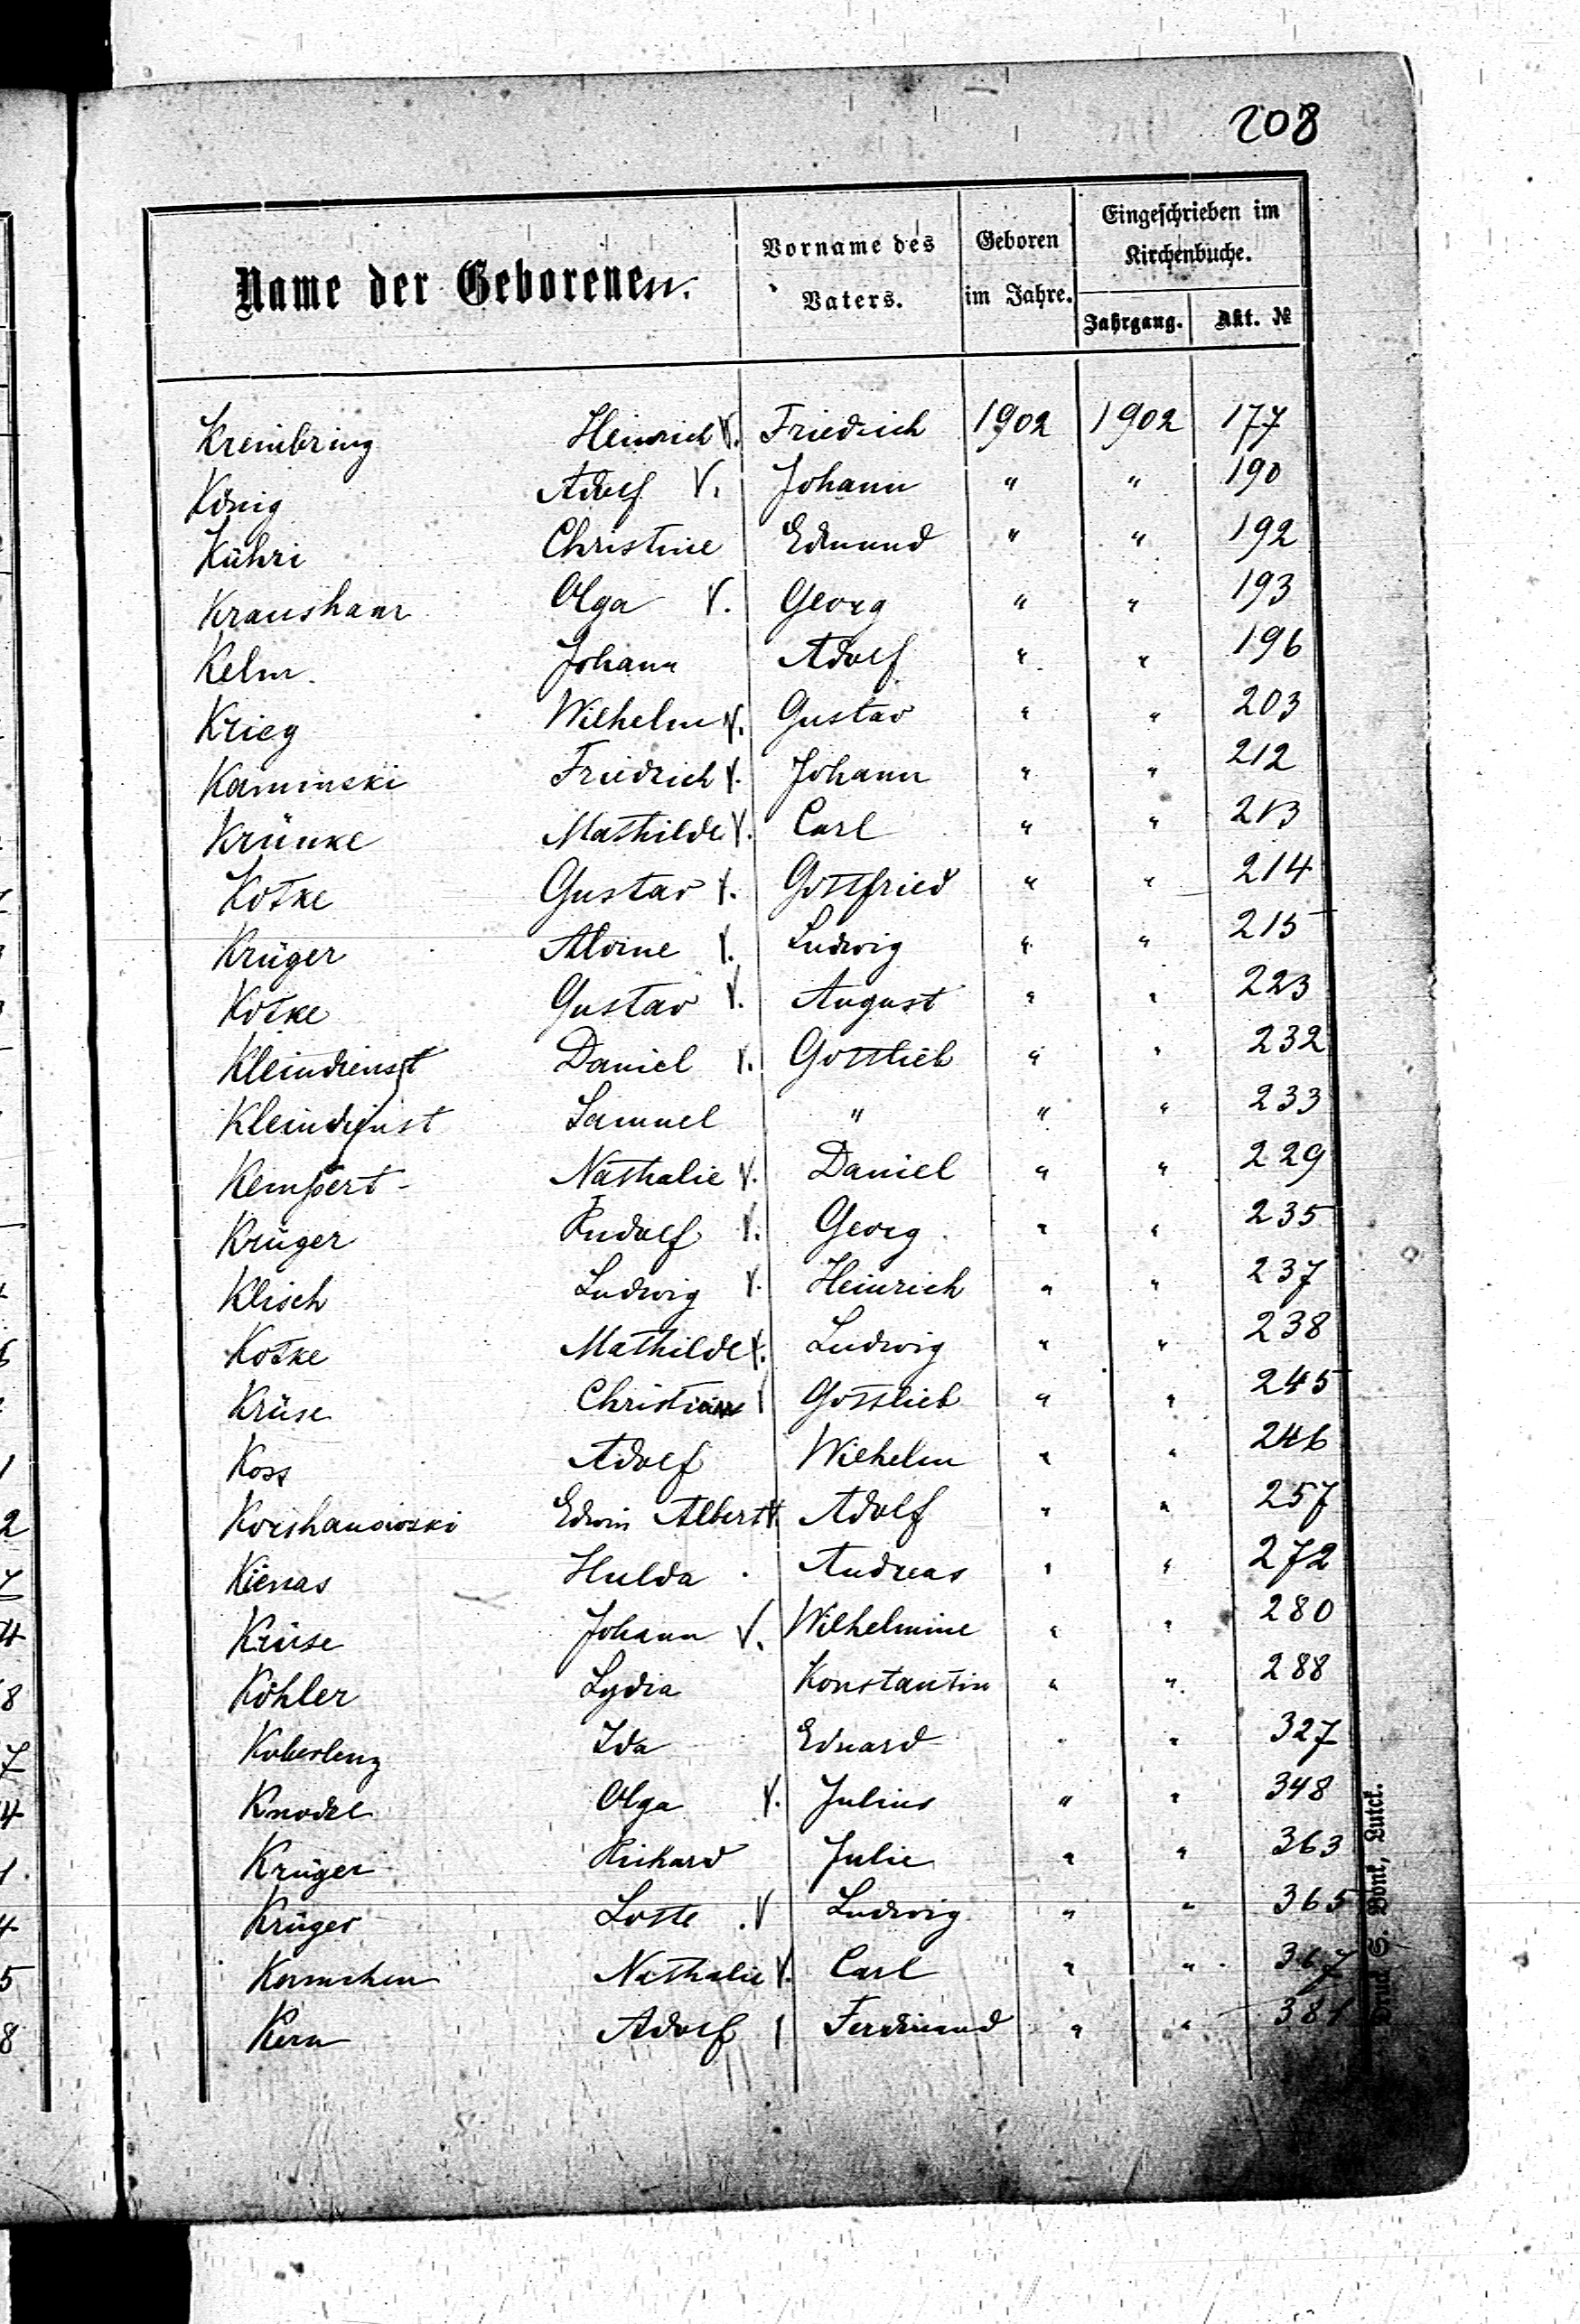 208
Name der Geborenen. Vorname des Vaters. Geboren im Jahre. Eingeschrieben im Kirchenbuche.
Jahrgang. Akt. №
Kreinbring Heinrich V. Friedrich 1902 1902 177
König Adolf V. Johann " " 190
Kühri Christine Edmund " " 192
Kraushaar Olga V. Georg " " 193
Kelm Johann Adolf " " 196
Krieg Wilhelm V. Gustav " " 203
Kaminski Friedrich V. Johann " " 212
Krünke Mathilde V. Carl " " 213
Kotke Gustav V. Gottfried " " 214
Krüger Alvine V. Ludwig " " 215
Kotke Gustav V. August " " 223
Kleindienst Daniel V. Gottlieb " " 232
Kleindienst Samuel " " " 233
Kempert Nathalie V. Daniel " " 229
Krüger Rudolf V. Georg " " 235
Klisch Ludwig V. Heinrich " " 237
Kotke Mathilde V. Ludwig " " 238
Krüse Christian V Gottlieb " " 245
Koss Adolf Wilhelm " " 246
Edwin Albert V. Adolf " " 257
Kienas Hulda Andreas " " 272
Krüse Johann V. Wilhelmine " " 280
Köhler Lydia Konstantin " " 288
Ida Eduard " " 327
Knodel Olga V. Julius " " 348
Krüger Richard Julie " " 363
Krüger Lotte V Ludwig " " 365
Nathalie V. Carl " " 367
Kern Adolf Ferdinand " " 381
Druck S. Bonk, Lutck.